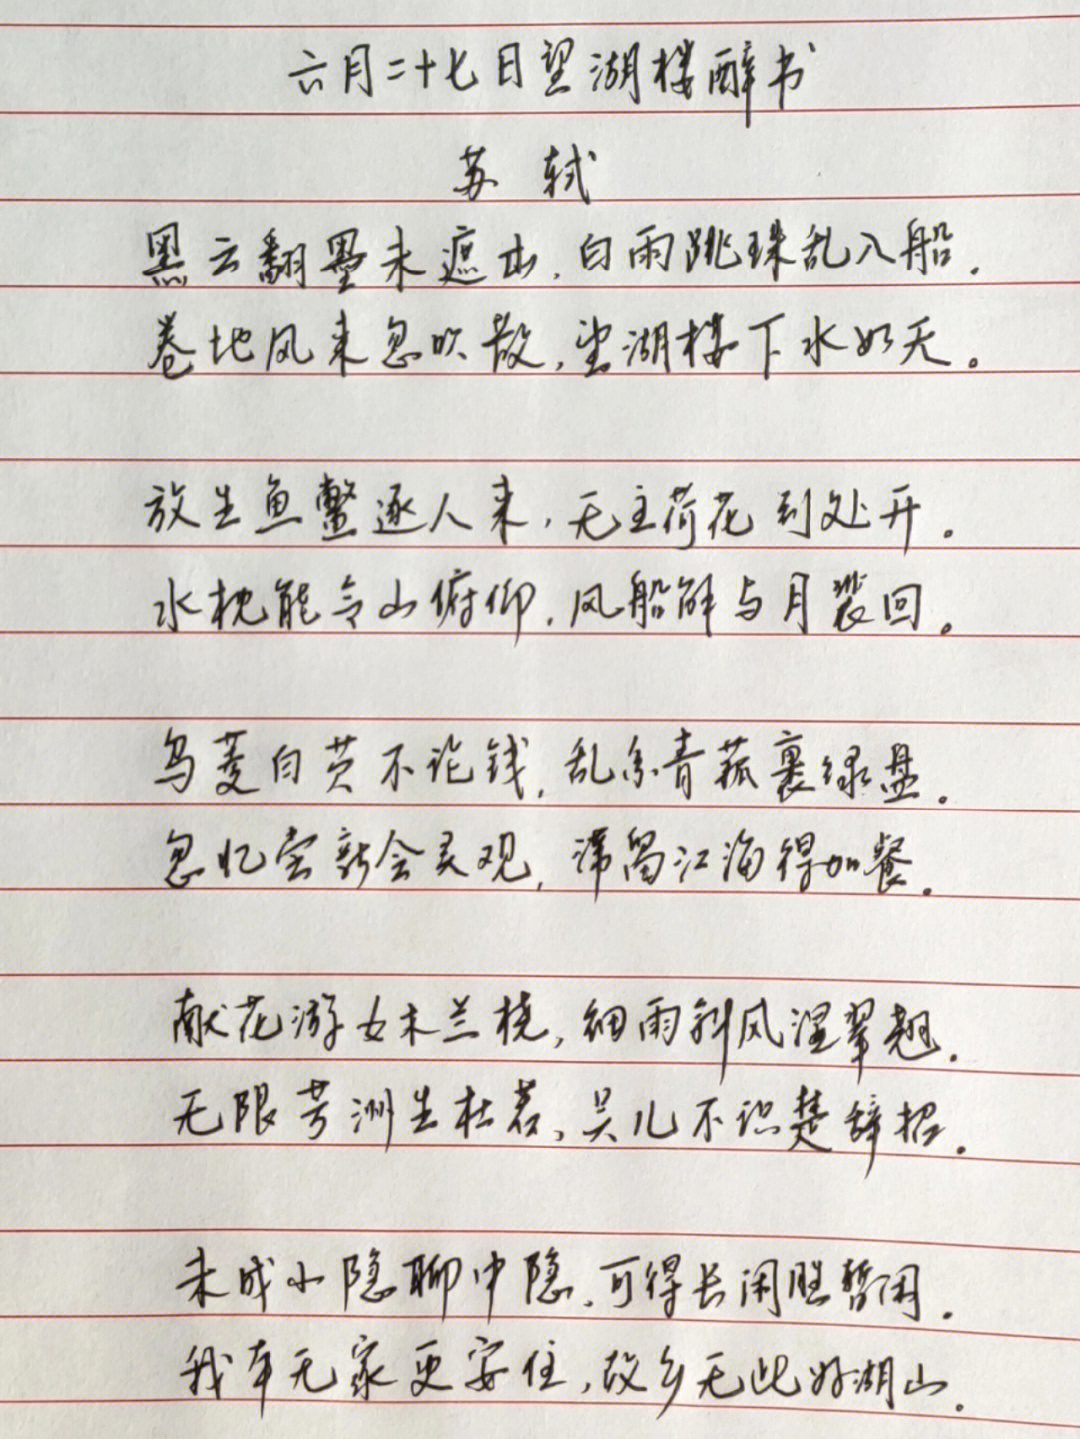 六月二十七日望湖楼醉书
苏轼
黑云翻墨未遮山,白雨跳珠乱入船。
卷地风来忽吹散,望湖楼下水如天。
放生鱼鳖逐人来,无主荷花到处开。
水枕能令山俯仰,风船解与月裴回。
乌菱白芡不论钱,乱系青菰裹绿盘。
忽忆尝新会灵观,滞留江海得加餐。
献花游女木兰桡,细雨斜风湿翠翘。
无限芳洲生杜若,吴儿不识楚辞招。
未成小隐聊中隐,可得长闲胜暂闲。
我本无家更安住,故乡无此好湖山。